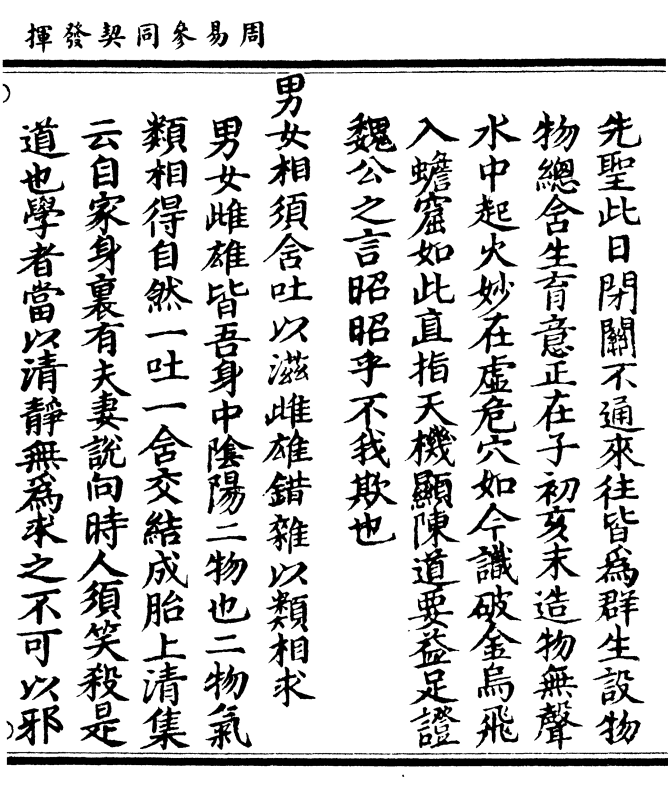 周易參同契發揮
先聖此日閉關不通來往皆爲群生設物
物總含生育意正在子初亥末造物無聲
水中起火妙在虛危穴如今識破金烏飛
入蟾窟如此直指天機顯陳道要益足證
魏公之言昭昭乎不我欺也
男女相須含吐以滋雌雄錯雜以類相求
男女雌雄皆吾身中陰陽二物也二物氣
類相得自然一吐一含交結成胎上清集
云自家身裏有夫妻說向時人須笑殺是
道也學者當以清靜無爲求之不可以邪